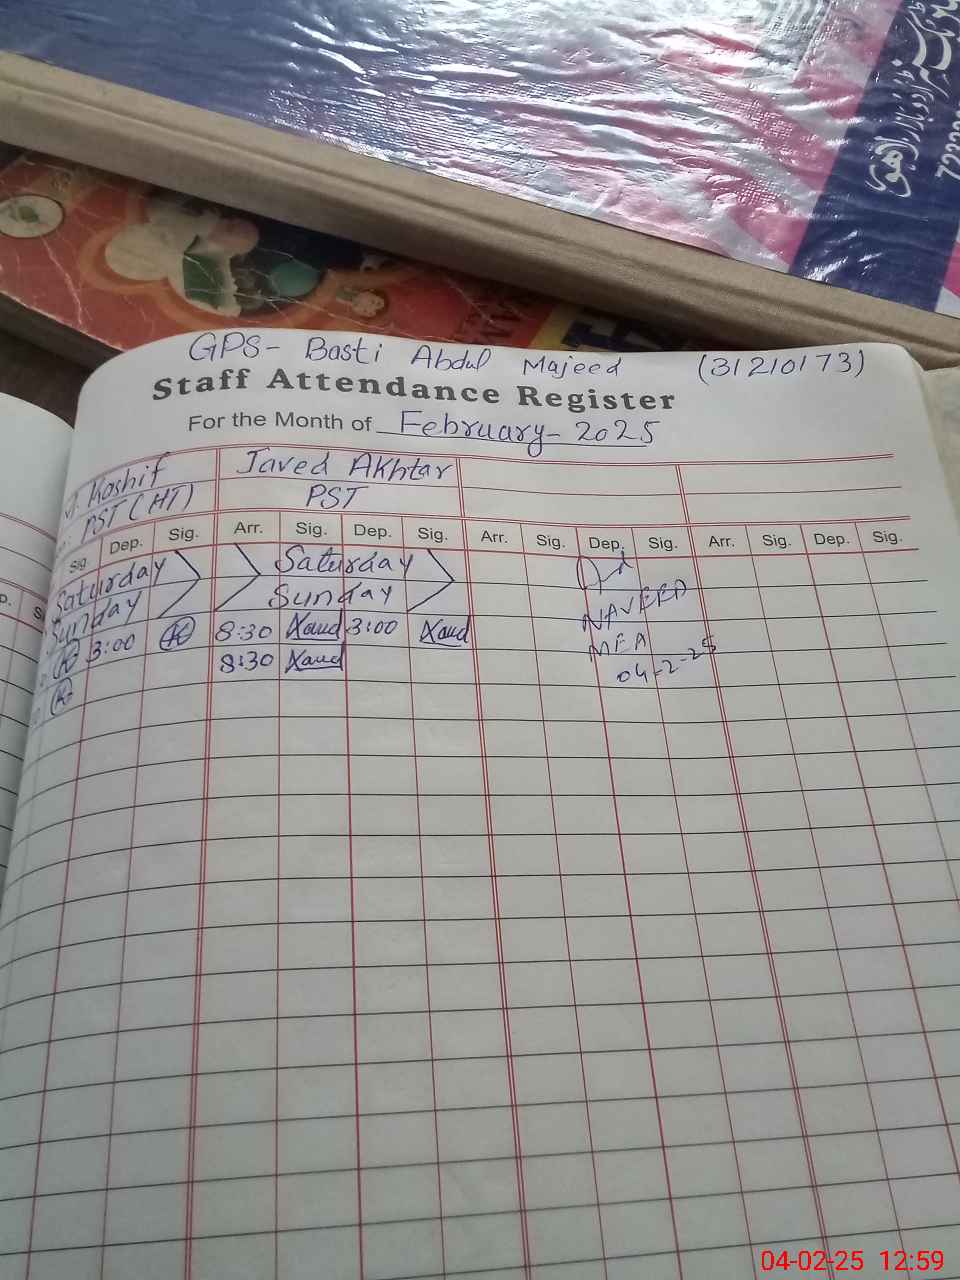 GPS- Basti Abdul Majeed (31210173)
Staff Attendance Register
For the Month of February- 2025
Kashif Javed Akhtar
PST (HT) PST
Sig. Dep. Sig. Arr. Sig. Dep. Sig. Arr. Sig. Dep. Sig. Arr. Sig. Dep. Sig.
Saturday Saturday
Sunday Sunday
3:00 8:30 3:00
8:30
NAVEED
MEA
04-2-25
04-02-25 12:59